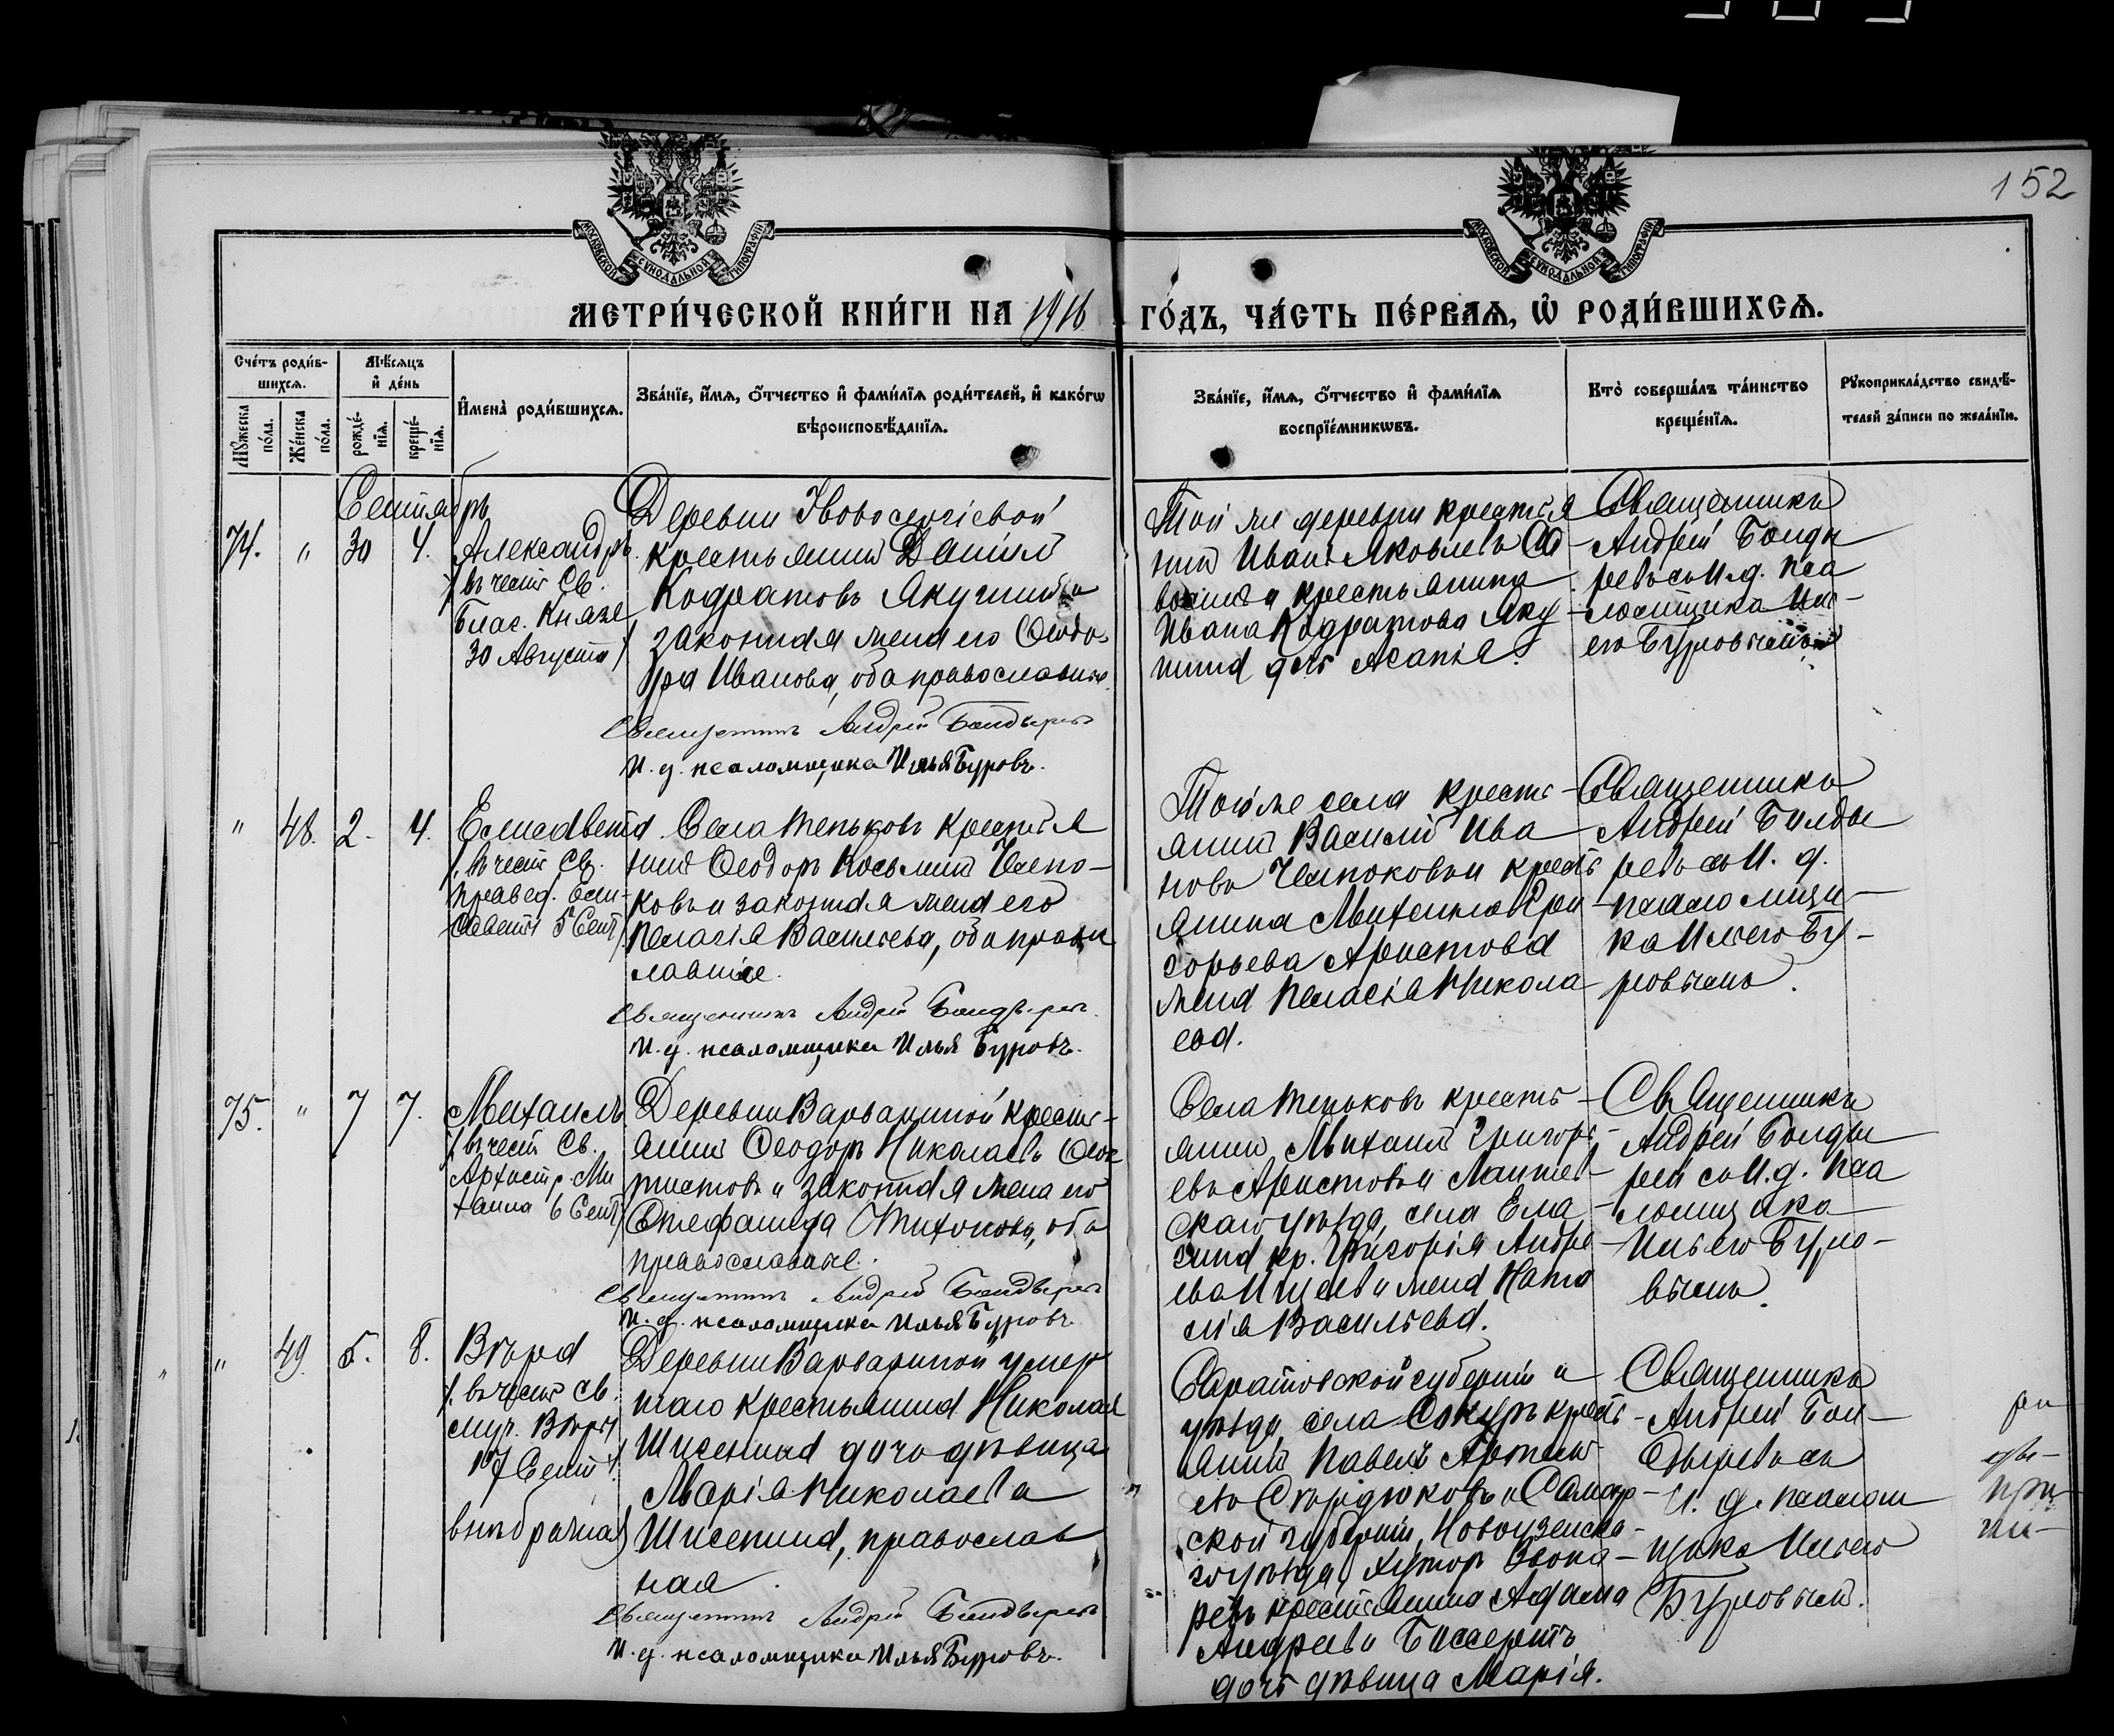 152
МОСКОВСКОЙ СУНОДАЛЬНОЙ ТИПОГРАФІИ
МОСКОВСКОЙ СУНОДАЛЬНОЙ ТИПОГРАФІИ
МЕТРИ́ЧЕСКОЙ КНИ́ГИ НА 1916 ГО́ДЪ, ЧА́СТЬ ПЕ́РВАѦ, Ѿ РОДИ́ВШИХСѦ.
Сче́тъ роди́в-
шихсѧ.
Мꙋжеска по́ла.
Же́нска по́ла.
Мѣ́сѧцъ
и҆ де́нь
рожде́-
нїѧ.
креще́-
нїѧ.
И҆мена̀ роди́вшихсѧ.
Зва́нїе, и҆́мѧ, о҆́тчество и҆ фами́лїѧ роди́телей, и҆ како́гѡ
вѣроисповѣ́данїѧ.
Зва́нїе, и҆́мѧ, о҆́тчество и҆ фами́лїѧ
воспрїе́мникѡвъ.
Кто̀ соверша́лъ та́инство
креще́нїѧ.
Рꙋкоприкла́дство свидѣ́-
телей за́писи по жела́нїю.
Сентябрь
74. " 30 4.
Александръ
/въ честь Св.
Благ. Князя
30 Августа/
Деревни Новосергіевой
крестьянинъ Даніилъ
Кодратовъ Якушинъ и
законная жена его Ѳеодо
ра Иванова, оба православные.
Священникъ Андрей Болдыревъ
И. д. псаломщика Илья Буровъ.
Той же деревни крестья
нинъ Иванъ Яковлевъ
и крестьянина
Ивана Кодратова Яку-
шина дочь
Священникъ
Андрей Болды
ревъ съ И. д. пса
ломщика Иль-
ею Буровымъ
" 48. 2. 4.
Елисавета
/въ честь Св.
правед. Ели-
саветы 5 Сент/
Села Теньковъ крестья
нинъ Ѳеодоръ Косьминъ
ковъ и законная жена его
Пелагія Васильева, оба право
славные.
Священникъ Андрей Болдыревъ
И. д. псаломщика Илья Буровъ.
Того же села кресть-
янинъ Василій Ива
новъ и кресть
янина Михаила Гри
горьева Аристова
жена Пелагія Никола
ева.
Священникъ
Андрей Болды
ревъ съ И. д.
псаломщи-
ка Ильею Бу-
ровымъ.
75. " 7 7.
Михаилъ
/въ честь Св.
Архистр. Ми
хаила 6 Сент/
Деревни Варвариной кресть-
янинъ Ѳеодоръ Николаевъ
и законная жена его
Стефанида Тихонова, оба
православные.
Священникъ Андрей Болдыревъ
И. д. псаломщика Илья Буровъ
Села Теньковъ кресть-
янинъ Михаилъ Григорь-
евъ Аристовъ и Лаишев-
скаго уѣзда, села
кр. Григорія Андре
ева жена Ната
лія Васильева.
Священникъ
Андрей Болды
рев съ И. д. пса
ломщика
Ильею Буро-
вымъ.
" 49. 5. 8.
Вѣра
/въ честь св.
муч. Вѣры
17 Сент/
внѣбрачная
Деревни Варвариной умер
шаго крестьянина Николая
Шишенина дочь дѣвица
Марія Николаева
Шишенина, православ
ная.
Священникъ Андрей Болдыревъ
И. д. псаломщика Илья Буровъ.
Саратовской губерніи и
уѣзда, села Сокуръ кресть-
янинъ Павелъ Артемь-
евъ Сердюковъ и Самар-
ской губерніи, Новоузенска-
го уѣзда, хуторъ
крестьянина Адама
Андреева
дочь дѣвица Марія.
Священникъ
Андрей Бол-
дыревъ съ
И. д. псалом
щика Ильею
Буровым.